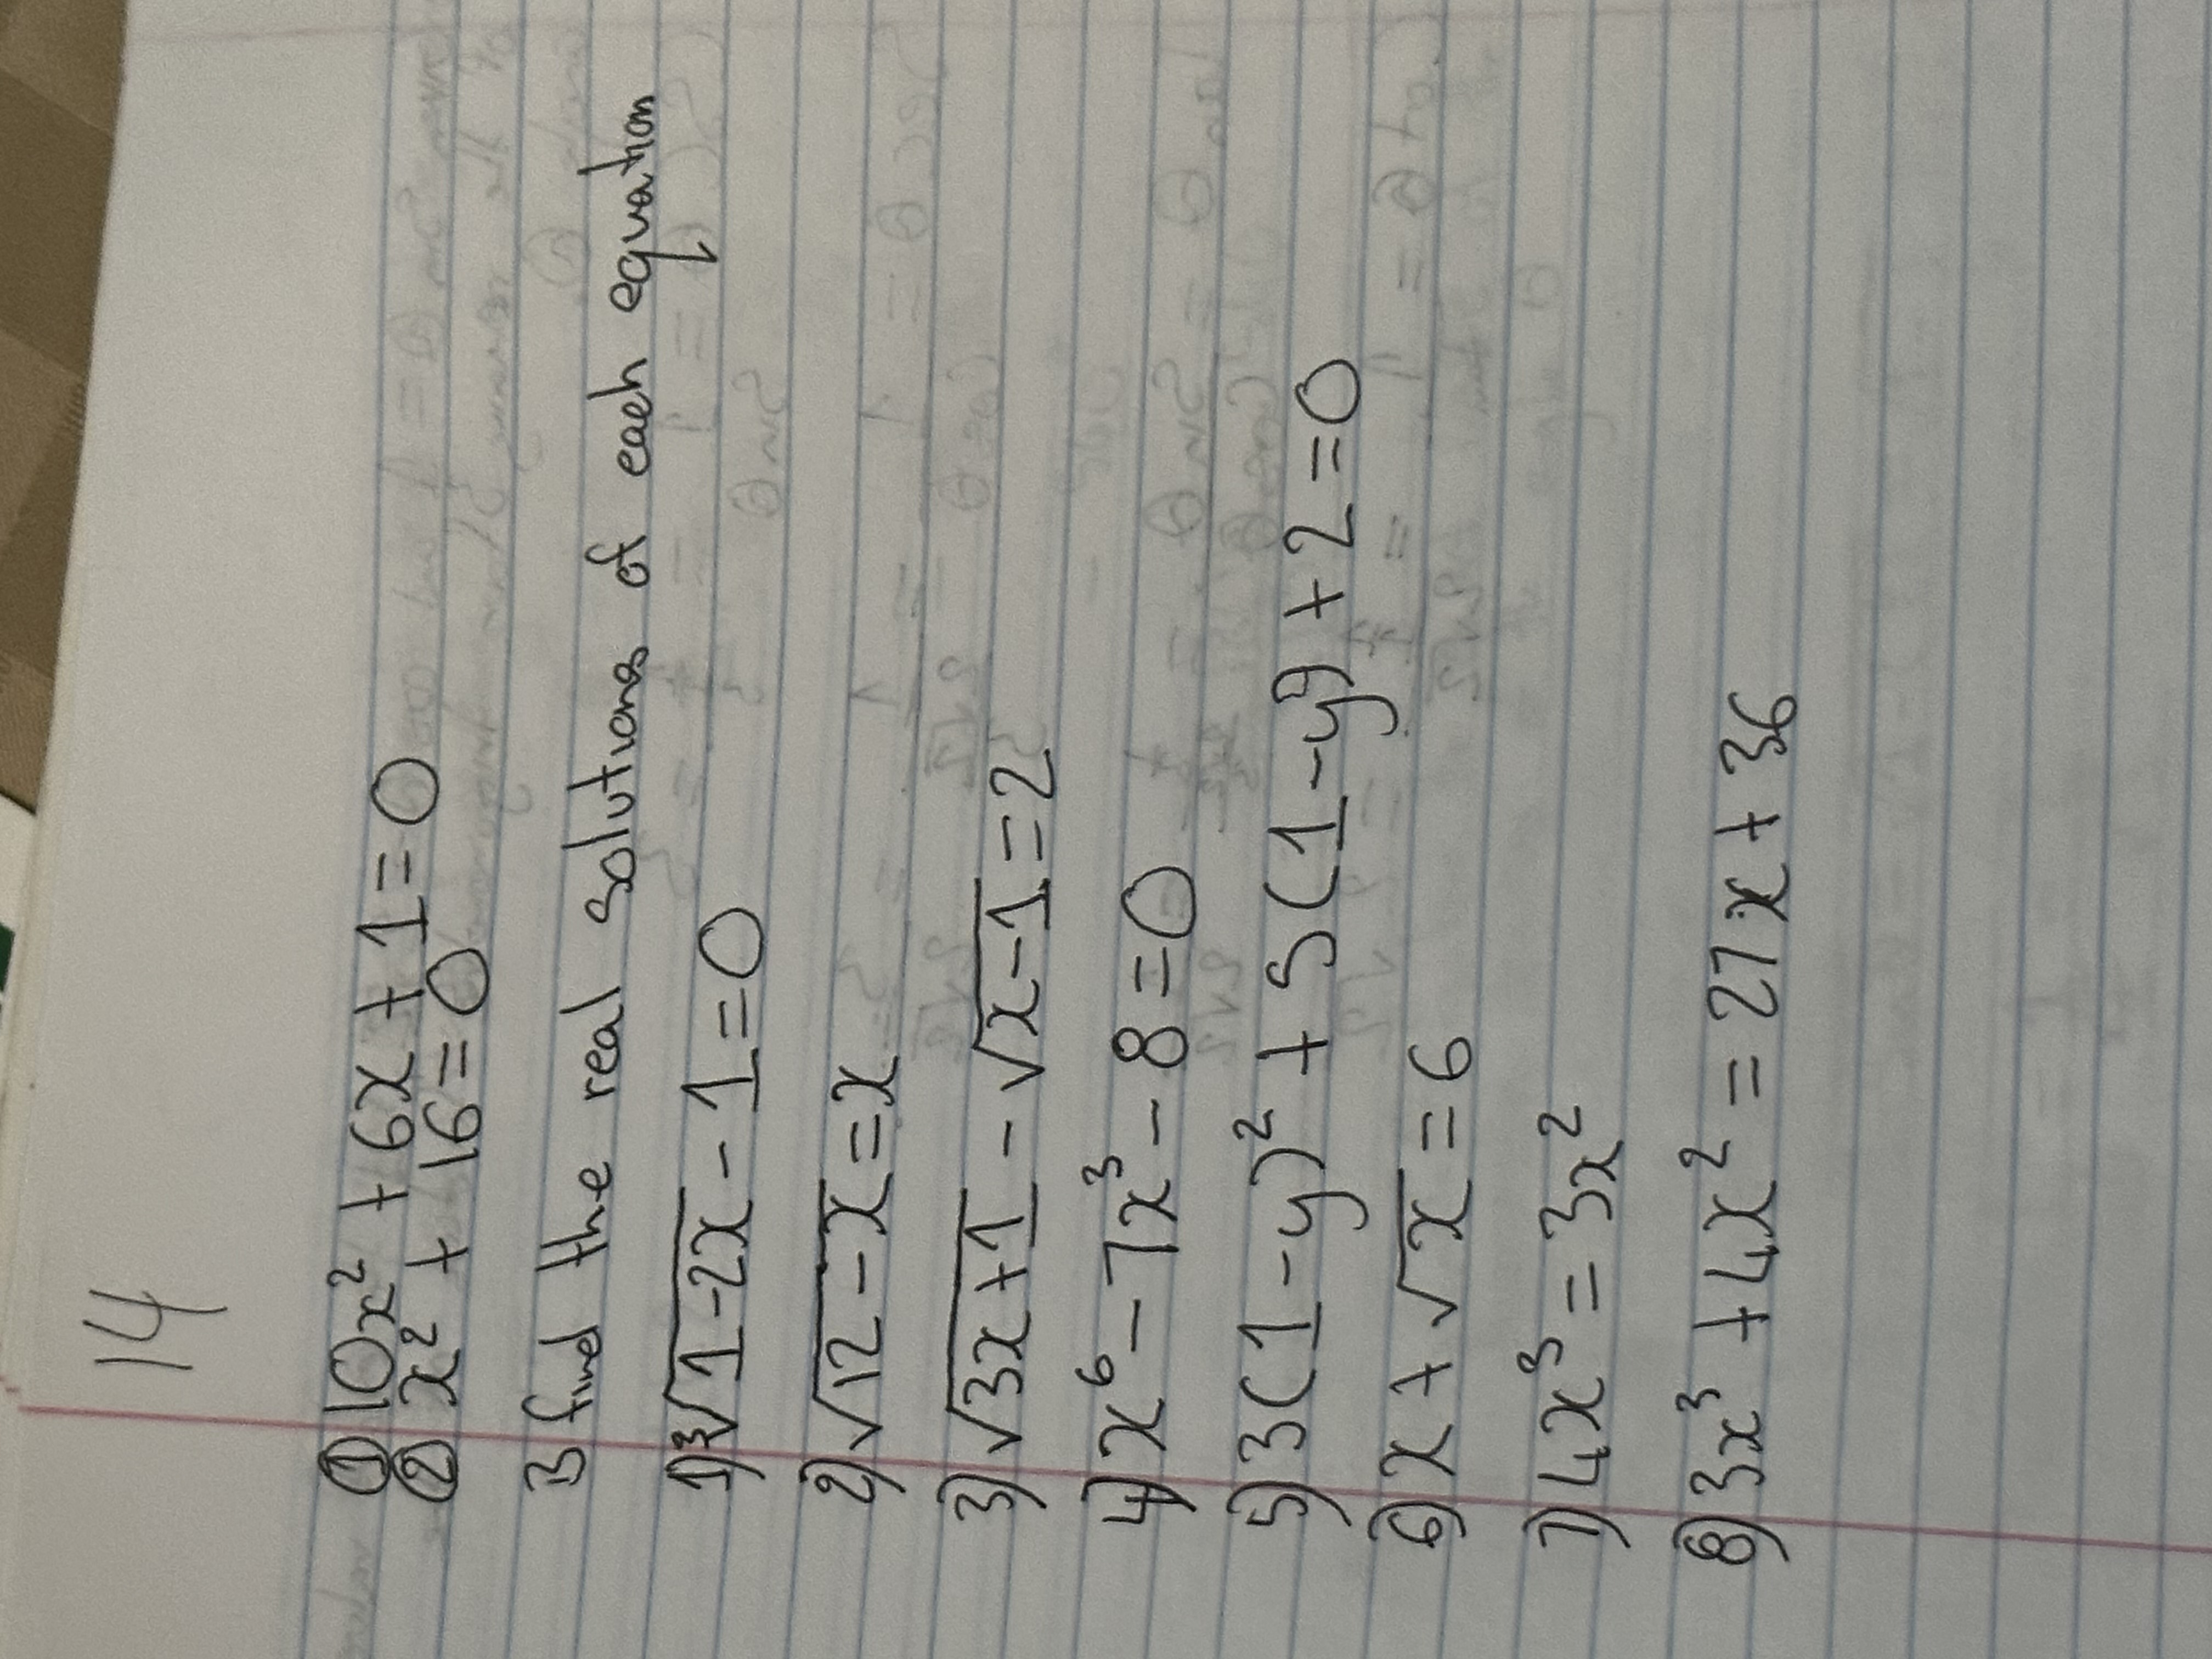 14
① 10x² + 6x + 1 = 0
② x² + 16 = 0
B find the real solutions of each equation
1) ∛(1-2x) - 1 = 0
2) √(12-x) = x
3) √(3x+1) - √(x-1) = 2
4) x⁶ - 7x³ - 8 = 0
5) 3(1-y)² + 5(1-y) + 2 = 0
6) x + √x = 6
7) 4x³ = 3x²
8) 3x³ + 4x² = 27x + 36